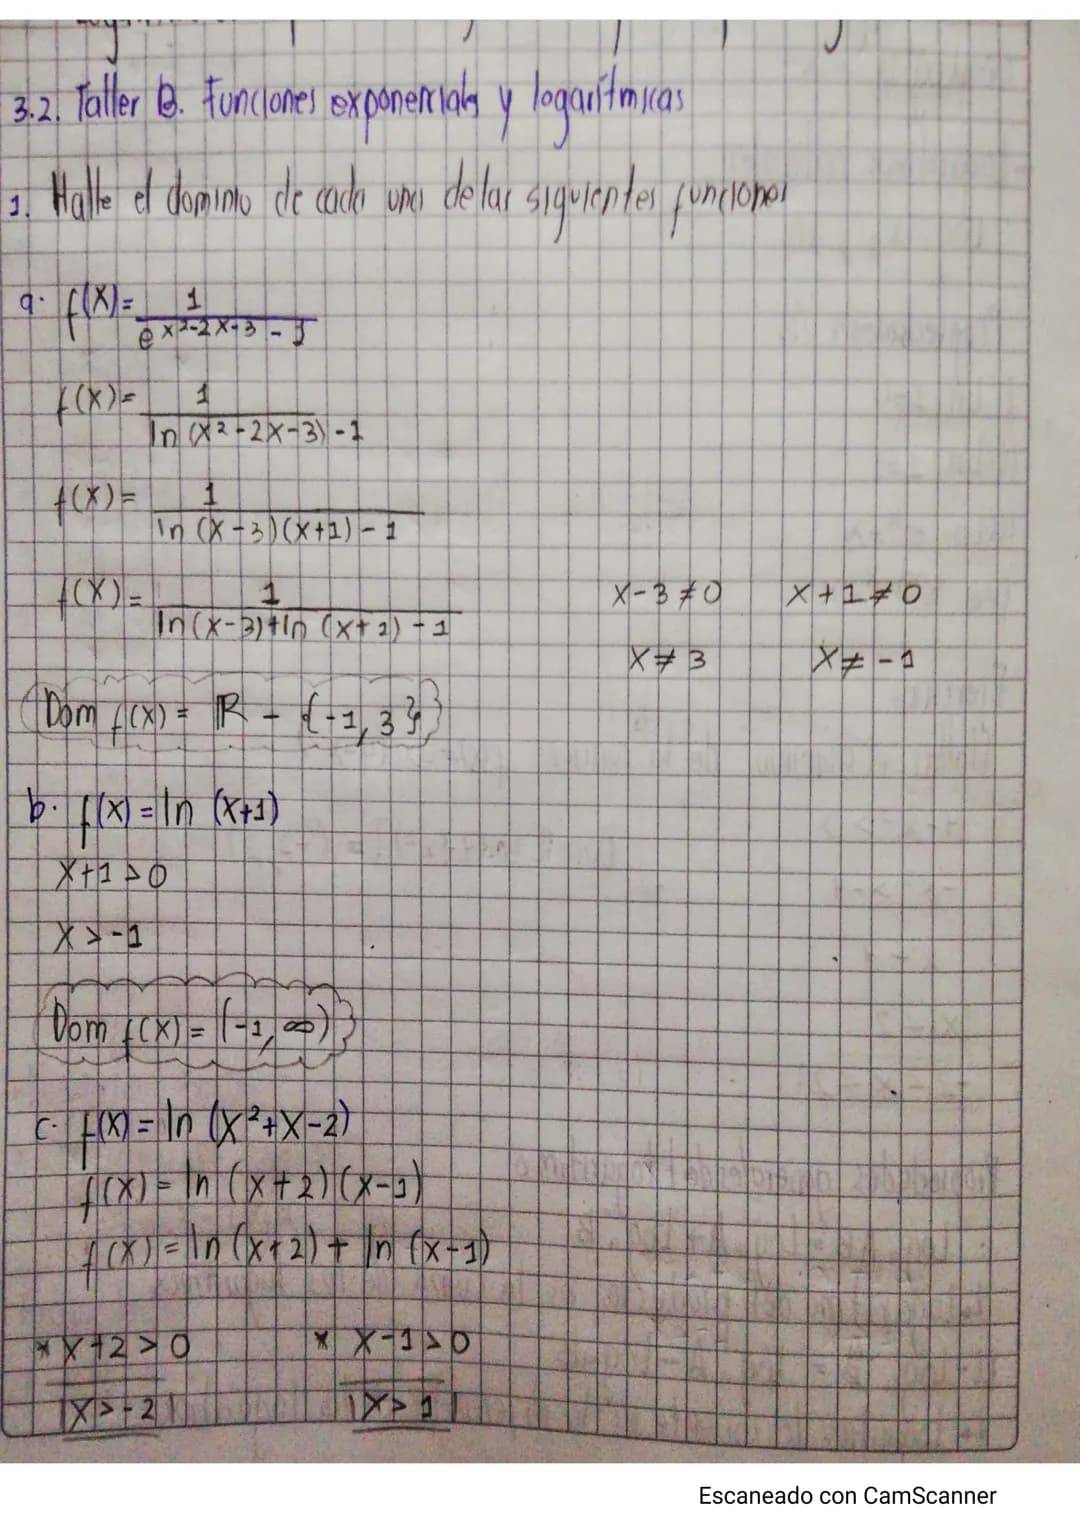 3.2. Taller B. Funciones exponenciales y logarítmicas
1. Halle el dominio de cada una de las siguientes funciones
a. f(x)= 1 / e^x²-2x-3 - 1
f(x)= 1 / ln (x²-2x-3) -1
f(x)= 1 / ln (x-3)(x+1) - 1
f(x)= 1 / ln(x-3)+ln (x+1) - 1 x-3≠0 x+1≠0
x≠3 x≠-1
Dom f(x) = ℝ - {-1, 3}
b. f(x) = ln (x+1)
x+1 > 0
x > -1
Dom f(x) = (-1, ∞)
c. f(x) = ln (x²+x-2)
f(x) = ln (x+2)(x-1)
f(x) = ln (x+2) + ln (x-1)
* x+2 > 0 * x-1 > 0
x > -2 x > 1
Escaneado con CamScanner